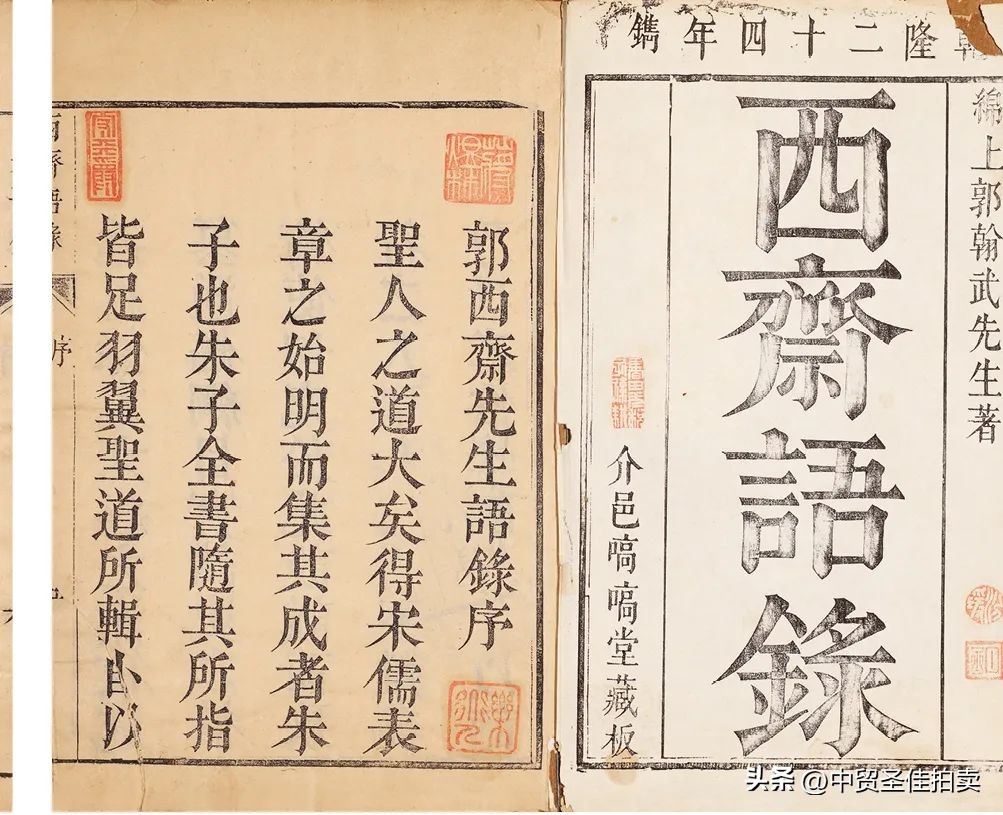 乾隆二十四年鐫
綿上郭翰武先生著
西齋語錄
介邑嗃嗃堂藏板
郭西齋先生語錄序
聖人之道大矣得宋儒表
章之始明而集其成者朱
子也朱子全書隨其所指
皆足羽翼聖道所輯
序
头条 @中贸圣佳拍卖